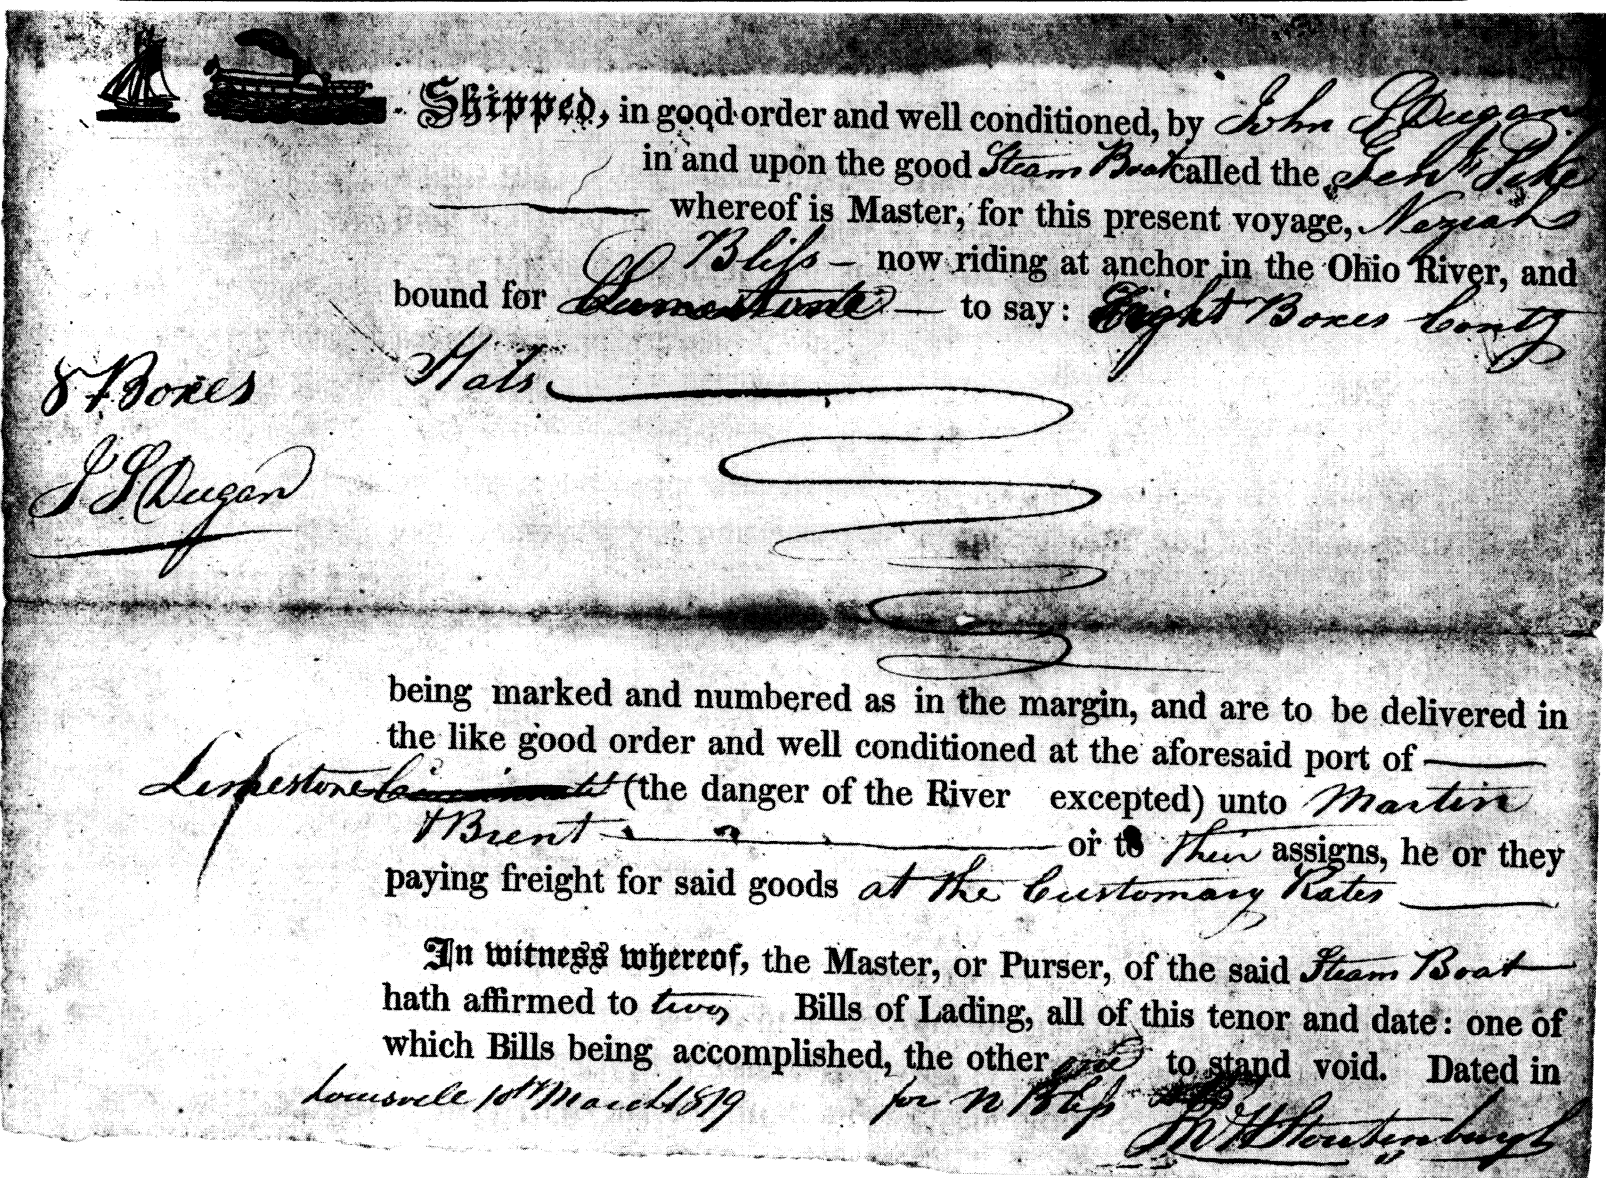 Shipped, in good order and well conditioned, by John S Dugan
in and upon the good Steam Boat called the Genl. Pike
whereof is Master, for this present voyage, Neziah
Bliss — now riding at anchor in the Ohio River, and
bound for Limestone — to say: Eight Boxes Contg
8 Boxes Hats
J S Dugan
being marked and numbered as in the margin, and are to be delivered in
the like good order and well conditioned at the aforesaid port of
Limestone Cincinnati (the danger of the River excepted) unto Martin
& Brent or to their assigns, he or they
paying freight for said goods at the Customary Rates
In witness whereof, the Master, or Purser, of the said Steam Boat
hath affirmed to two Bills of Lading, all of this tenor and date: one of
which Bills being accomplished, the other one to stand void. Dated in
Louisvele 10th March 1819 for N Bliss
Stoutenburgh